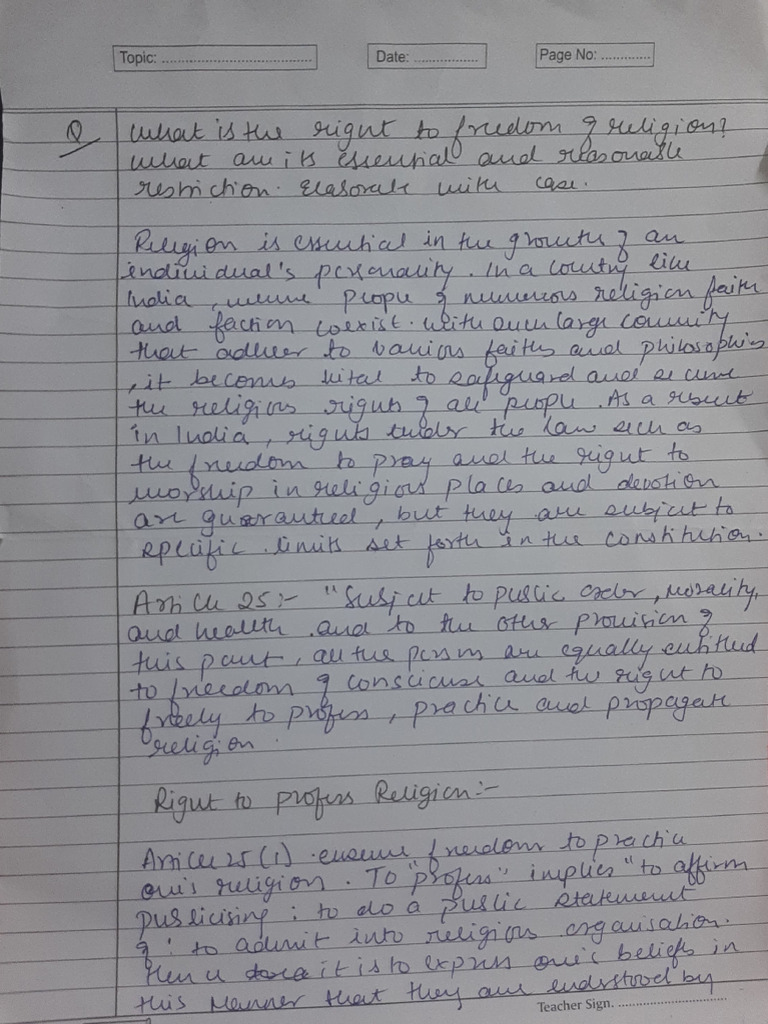 Topic: ..................................... Date: ................. Page No: .............
Q What is the right to freedom of religion?
What are its essential and reasonable
restriction. Elaborate with case.
Religion is essential in the growth of an
individual's personality. In a country like
India, where people of numerous religion faith
and faction coexist. With such large community
that adheer to various faiths and philosophies
, it becomes vital to safeguard and secure
the religious rights of all people. As a result
in India, rights under the law such as
the freedom to pray and the right to
worship in religious places and devotion
are guaranteed, but they are subject to
specific limits set forth in the constitution.
Article 25:- "Subject to public order, morality,
and health and to the other provision of
this part, all the persons are equally entitled
to freedom of conscience and the right to
freely to profess, practice and propagate
religion.
Right to profess Religion:-
Article 25(1) ensure freedom to practice
one's religion. To "profess" implies "to affirm
publicising : to do a public statement
of : to admit into religious organisation.
Hence it is to express one's beliefs in
this manner that they are understood by
Teacher Sign. ...........................